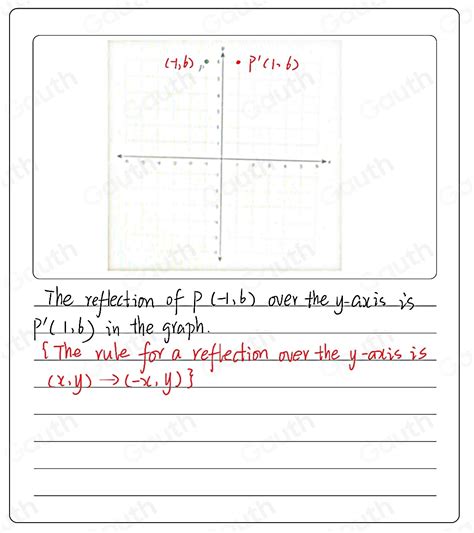 (-1,6) P P'(1,6)
The reflection of P (-1,6) over the y-axis is
P'(1,6) in the graph.
{The rule for a reflection over the y-axis is
(x,y) → (-x,y)}